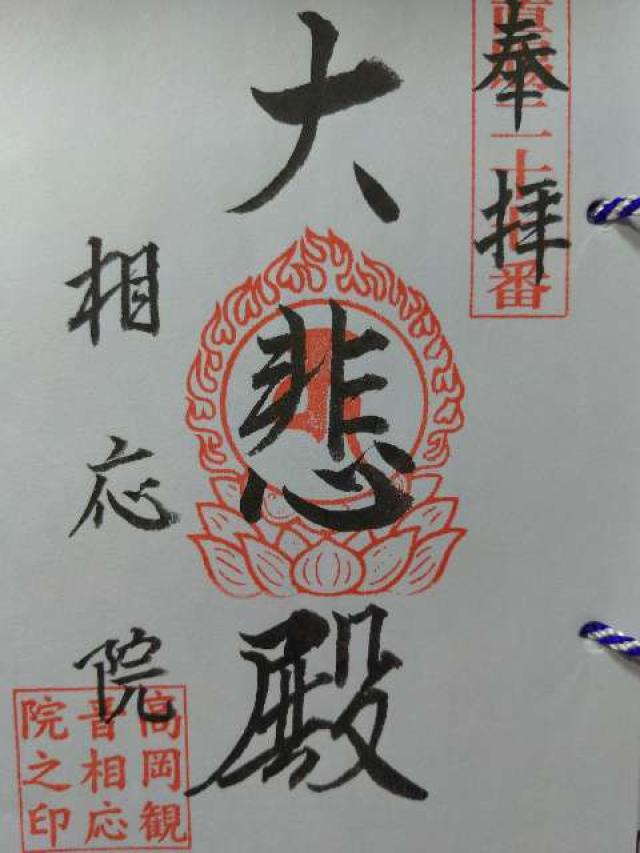 奉拝
番
大悲殿
相応院
高岡観
音相応
院之印